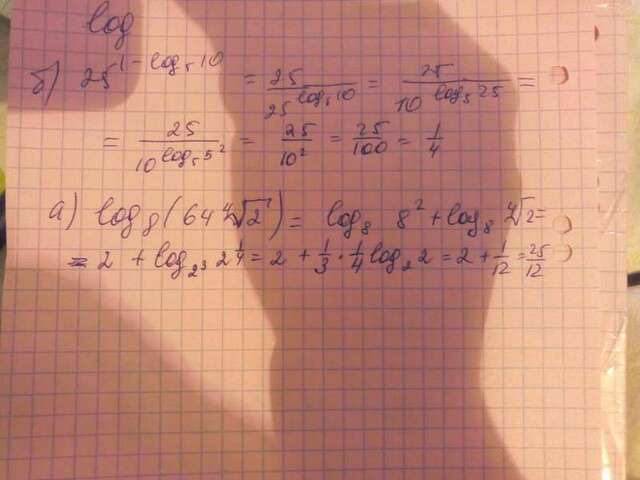 log
б) 25^(1-log₅10) = 25/25^(log₅10) = 25/10^(log₅25) =
= 25/10^(log₅5²) = 25/10² = 25/100 = 1/4
а) log₈(64 ⁴√2) = log₈ 8² + log₈ ⁴√2 =
= 2 + log_(2³) 2^(1/4) = 2 + 1/3 · 1/4 log₂ 2 = 2 + 1/12 = 25/12